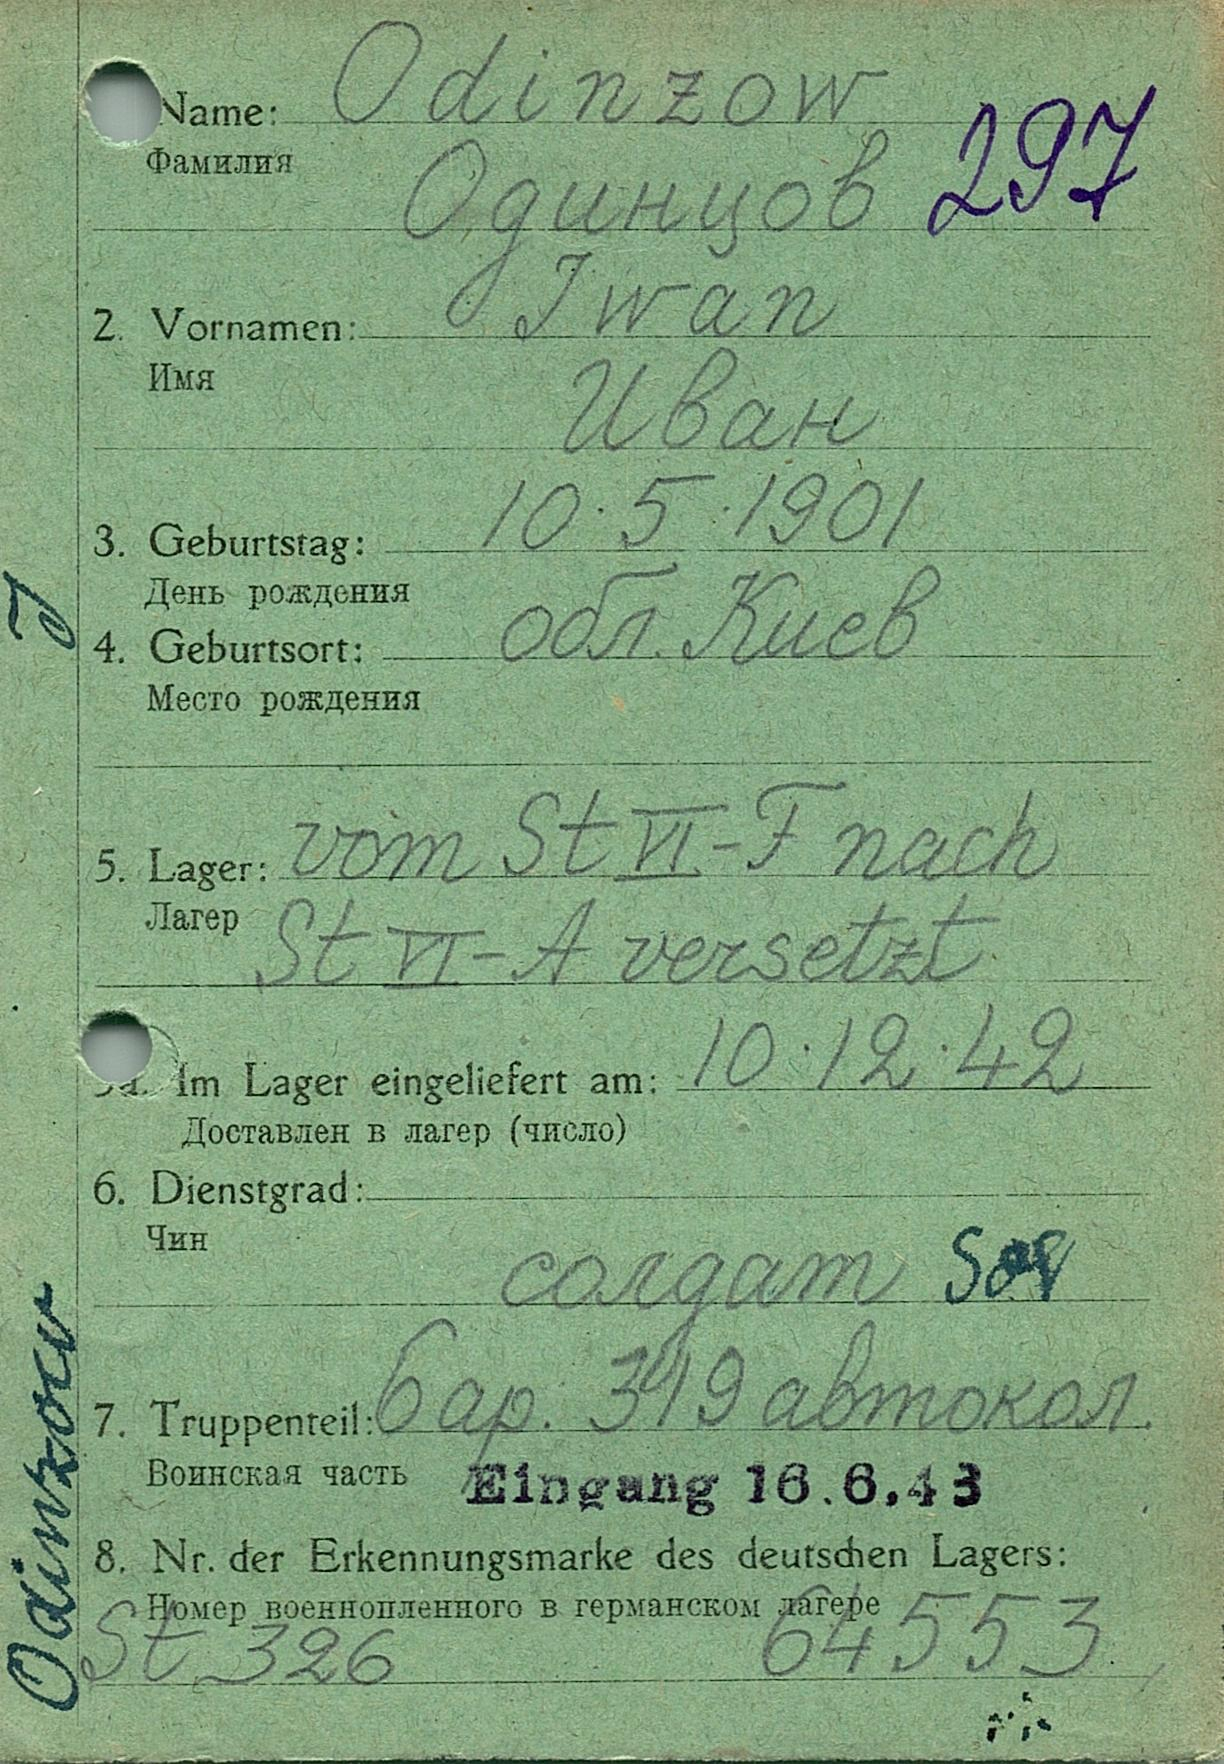 Name: Odinzow
Фамилия
Одинцов 297
2. Vornamen: Iwan
Имя
Иван
3. Geburtstag: 10.5.1901
День рождения
4. Geburtsort: обл. Киев
Место рождения
5. Lager: vom St VI-F nach
Лагер
St VI-A versetzt
5a. Im Lager eingeliefert am: 10.12.42
Доставлен в лагер (число)
6. Dienstgrad:
Чин
солдат
7. Truppenteil: 349 автокол.
Воинская часть
Eingang 16.6.43
8. Nr. der Erkennungsmarke des deutschen Lagers:
Номер военнопленного в германском лагере
St 326 64553
Odinzow